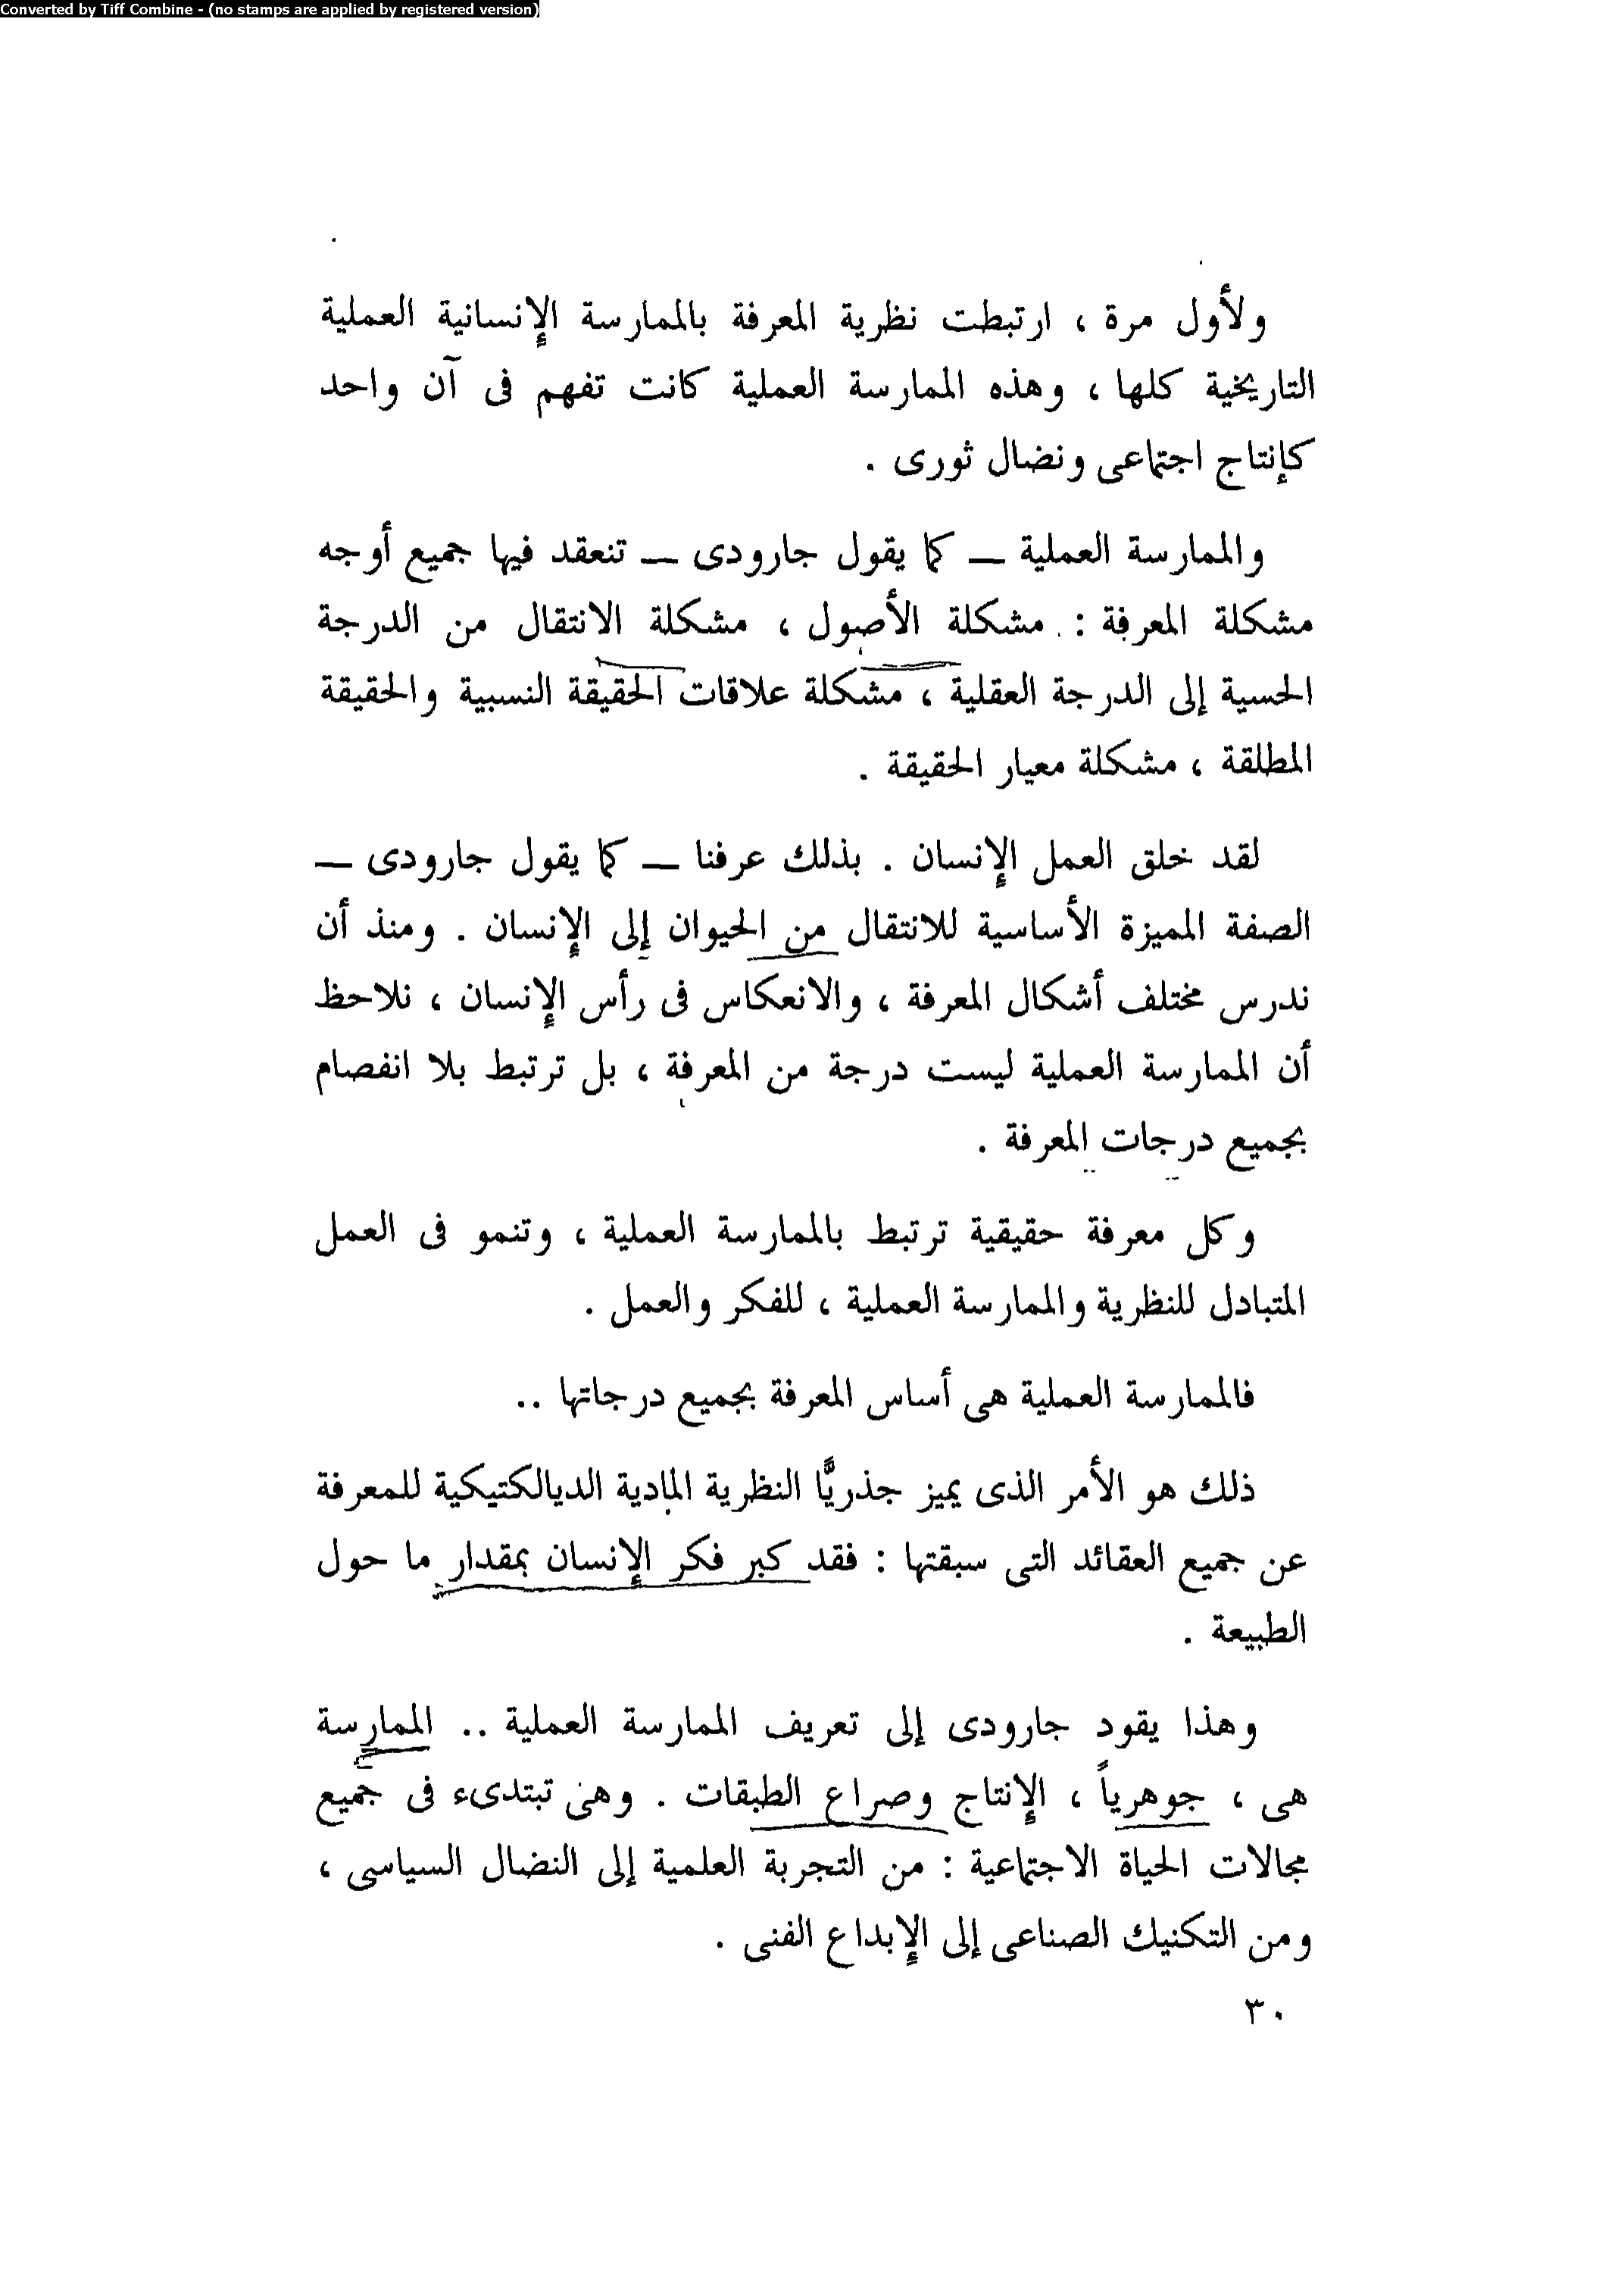 Converted by Tiff Combine - (no stamps are applied by registered version)
ولأول مرة ، ارتبطت نظرية المعرفة بالممارسة الإنسانية العملية
التاريخية كلها ، وهذه الممارسة العملية كانت تفهم فى آن واحد
كإنتاج اجتماعى ونضال ثورى .
والممارسة العملية — كما يقول جارودى — تنعقد فيها جميع أوجه
مشكلة المعرفة : مشكلة الأصول ، مشكلة الانتقال من الدرجة
الحسية إلى الدرجة العقلية ، مشكلة علاقات الحقيقة النسبية والحقيقة
المطلقة ، مشكلة معيار الحقيقة .
لقد خلق العمل الإنسان . بذلك عرفنا — كما يقول جارودى —
الصفة المميزة الأساسية للانتقال من الحيوان إلى الإنسان . ومنذ أن
ندرس مختلف أشكال المعرفة ، والانعكاس فى رأس الإنسان ، نلاحظ
أن الممارسة العملية ليست درجة من المعرفة ، بل ترتبط بلا انفصام
بجميع درجات المعرفة .
وكل معرفة حقيقية ترتبط بالممارسة العملية ، وتنمو فى العمل
المتبادل للنظرية والممارسة العملية ، للفكر والعمل .
فالممارسة العملية هى أساس المعرفة بجميع درجاتها ..
ذلك هو الأمر الذى يميز جذريًّا النظرية المادية الديالكتيكية للمعرفة
عن جميع العقائد التى سبقتها : فقد كبر فكر الإنسان بمقدار ما حول
الطبيعة .
وهذا يقود جارودى إلى تعريف الممارسة العملية .. الممارسة
هى ، جوهرياً ، الإنتاج وصراع الطبقات . وهى تبتدىء فى جميع
مجالات الحياة الاجتماعية : من التجربة العلمية إلى النضال السياسى ،
ومن التكنيك الصناعى إلى الإبداع الفنى .
٣٠